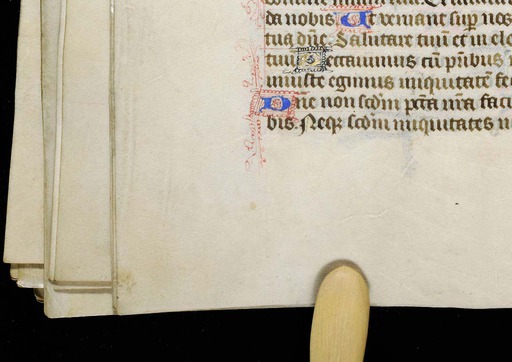 da nobis. Et veniant sup nos
tua dñe. Salutare tuũ et in elo
tui. Peccauimus cũ pr̃ibus
iniuste egimus iniquitatẽ fe
Dñe non scd̃m pctã nr̃a faci
bis. Neqz scd̃m iniquitates n